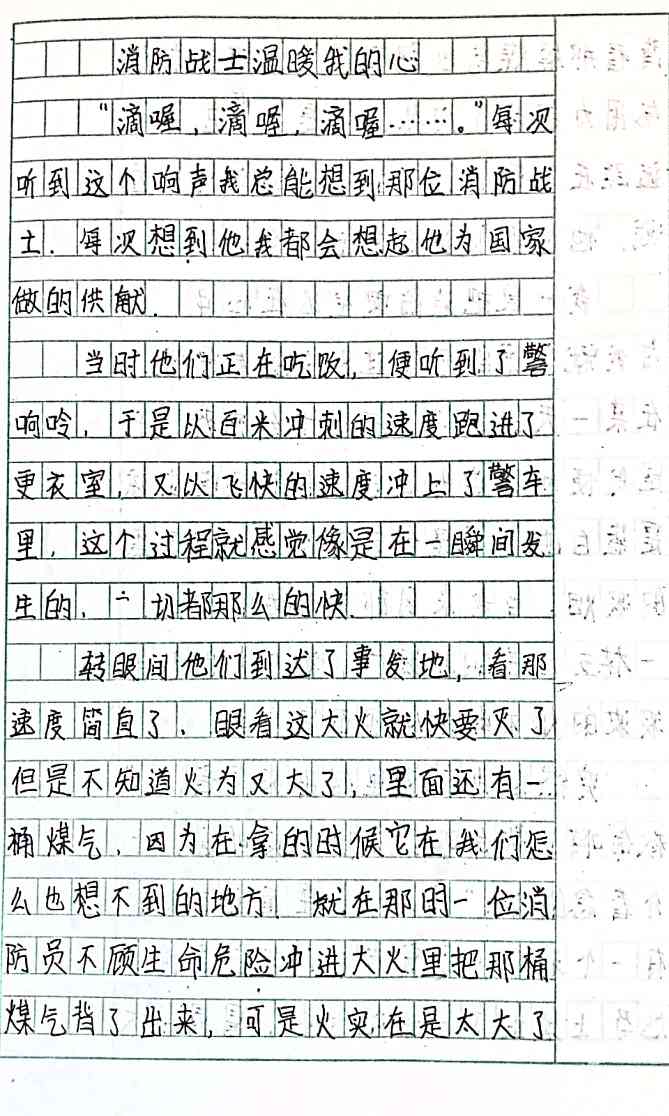 消防战士温暖我的心
“滴喔，滴喔，滴喔……。”每次
听到这个响声我总能想到那位消防战
士．每次想到他我都会想起他为国家
做的供献．
当时他们正在吃饭，便听到了警
响呤，于是以百米冲刺的速度跑进了
更衣室，又以飞快的速度冲上了警车
里．这个过程就感觉像是在一瞬间发
生的．一切都那么的快．
转眼间他们到达了事发地，看那
速度简直了．眼看这大火就快要灭了
但是不知道火为又大了，里面还有一
桶煤气．因为在拿的时候它在我们怎
么也想不到的地方 就在那时一位消
防员不顾生命危险冲进大火里把那桶
煤气背了出来，可是火实在是太大了